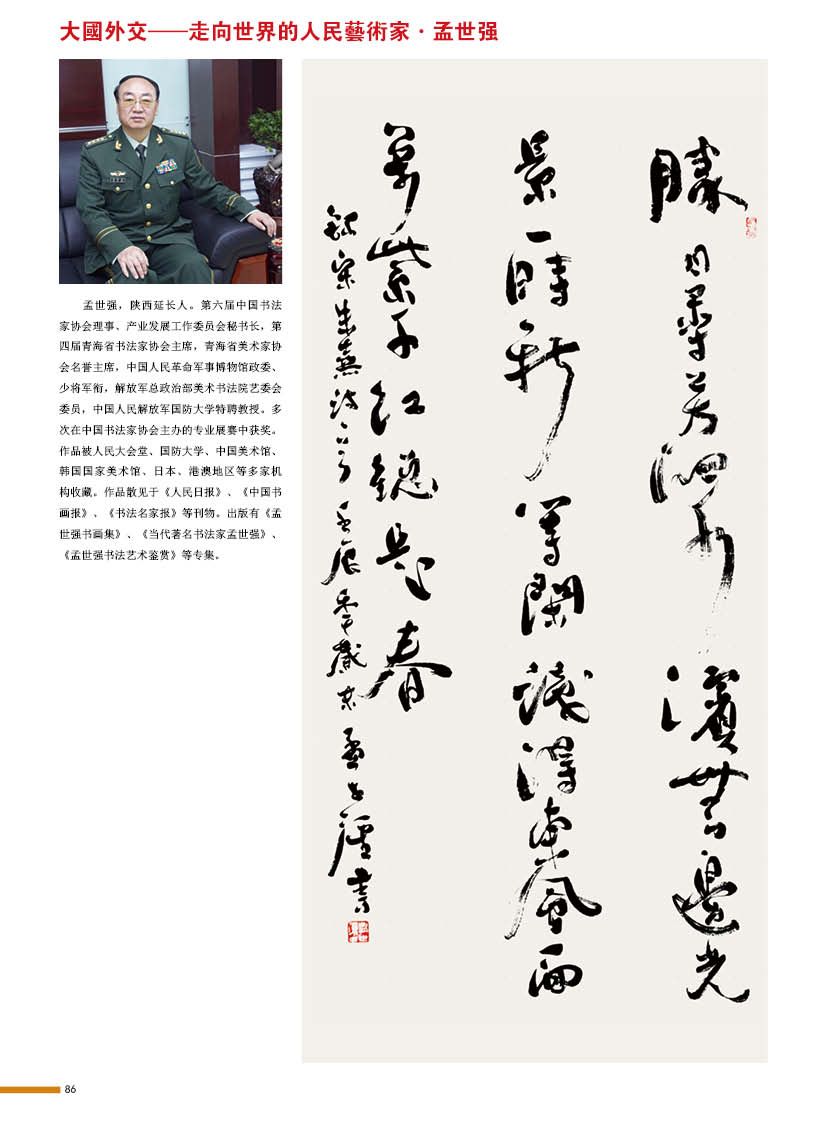 大國外交——走向世界的人民藝術家·孟世强
孟世强，陕西延长人。第六届中国书法
家协会理事、产业发展工作委员会秘书长，第
四届青海省书法家协会主席，青海省美术家协
会名誉主席，中国人民革命军事博物馆政委、
少将军衔，解放军总政治部美术书法院艺委会
委员，中国人民解放军国防大学特聘教授。多
次在中国书法家协会主办的专业展赛中获奖。
作品被人民大会堂、国防大学、中国美术馆、
韩国国家美术馆、日本、港澳地区等多家机
构收藏。作品散见于《人民日报》、《中国书
画报》、《书法名家报》等刊物。出版有《孟
世强书画集》、《当代著名书法家孟世强》、
《孟世强书法艺术鉴赏》等专集。
勝日尋芳泗水濱無邊光
景一時新等閑識得東風面
萬紫千紅總是春
錄宋朱熹詩一首壬辰年歲末孟世强書
86